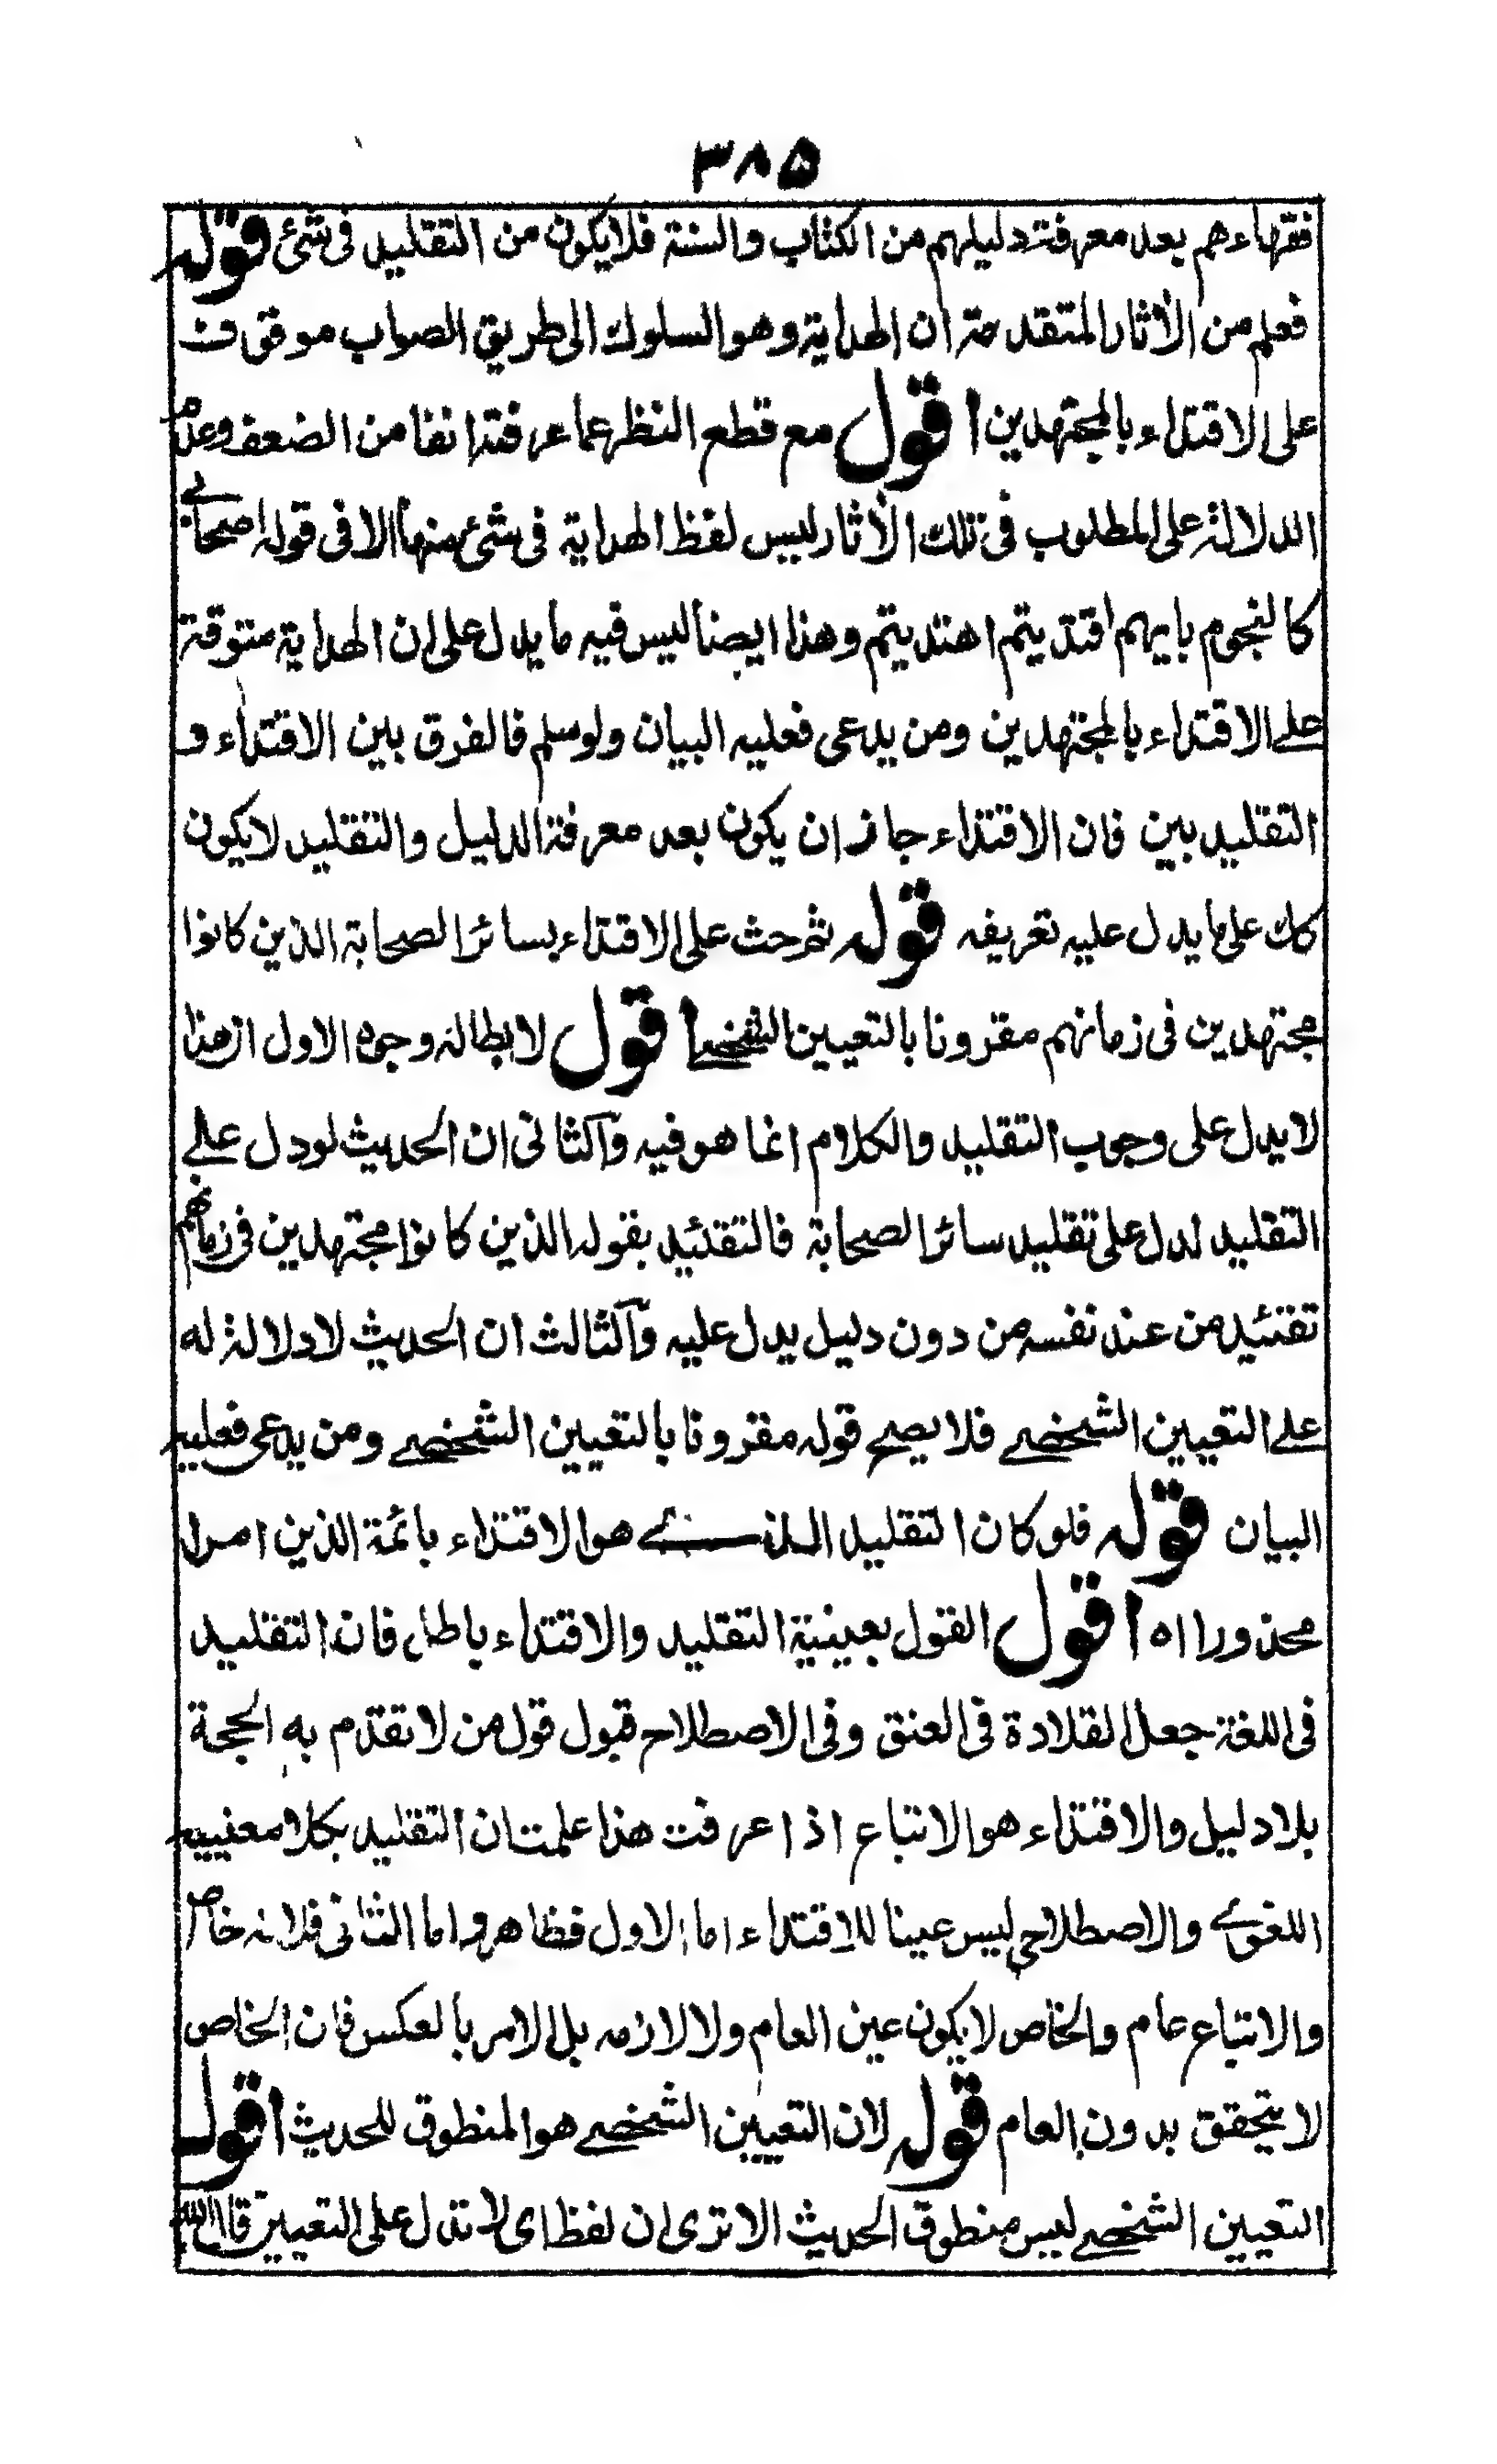 ۳۸۵
فقهاءهم بعد معرفة دليلهم من الكتاب والسنة فلا يكون من التقليد فى شئ قوله
فعلم من الأثار المتقدمة ان الهداية وهو السلوك الى طريق الصواب موقوف
على الاقتداء بالمجتهدين اقول مع قطع النظر عما عرفته انفا من الضعف وعدم
الدلالة على المطلوب فى تلك الأثار ليس لفظ الهداية فى شئ منها الا فى قوله اصحابے
كالنجوم بايهم اقتديتم اهتديتم وهذا ايضا ليس فيه ما يدل على ان الهداية متوقة
علے الاقتداء بالمجتهدين ومن يدعى فعليه البيان ولو سلم فالفرق بين الاقتداء و
التقليد بين فان الاقتداء جاز ان يكون بعد معرفة الدليل والتقليد لا يكون
كك على ما يدل عليه تعريفه قوله ثم حث على الاقتداء بسائر الصحابة الذين كانوا
مجتهدين فى زمانهم مقرونا بالتعيين الشخصے اقول لابطاله وجوه الاول ان هذا
لا يدل على وجوب التقليد والكلام انما هو فيه وآلثانى ان الحديث لو دل علے
التقليد لدل على تقليد سائر الصحابة فالتقئيد بقوله الذين كانوا مجتهدين فى زمانهم
تقئيد من عند نفسه من دون دليل يدل عليه وآلثالث ان الحديث لا دلالة له
علے التعيين الشخصے فلا يصح قوله مقرونا بالتعيين الشخصے ومن يدعى فعليه
البيان قوله فلو كان التقليد الذے هو الاقتداء بائمة الذين امرا
محذورا اه اقول القول بعينية التقليد والاقتداء باطل فان التقليد
فى اللغة جعل القلادة فى العنق وفى الاصطلاح قبول قول من لا تقدم به الحجة
بلا دليل والاقتداء هو الاتباع اذا عرفت هذا علمت ان التقليد بكلا معنييه
اللغوے والاصطلاحى ليس عينا للاقتداء اما الاول فظاهر واما الثانى فلانه خاص
والاتباع عام والخاص لا يكون عين العام ولا لازمه بل الامر بالعكس فان الخاص
لا يتحقق بدون العام قوله لان التعيين الشخصے هو المنطوق للحديث اقول
التعيين الشخصے ليس منطوق الحديث الا ترى ان لفظ اى لا تدل على التعيين قال الله